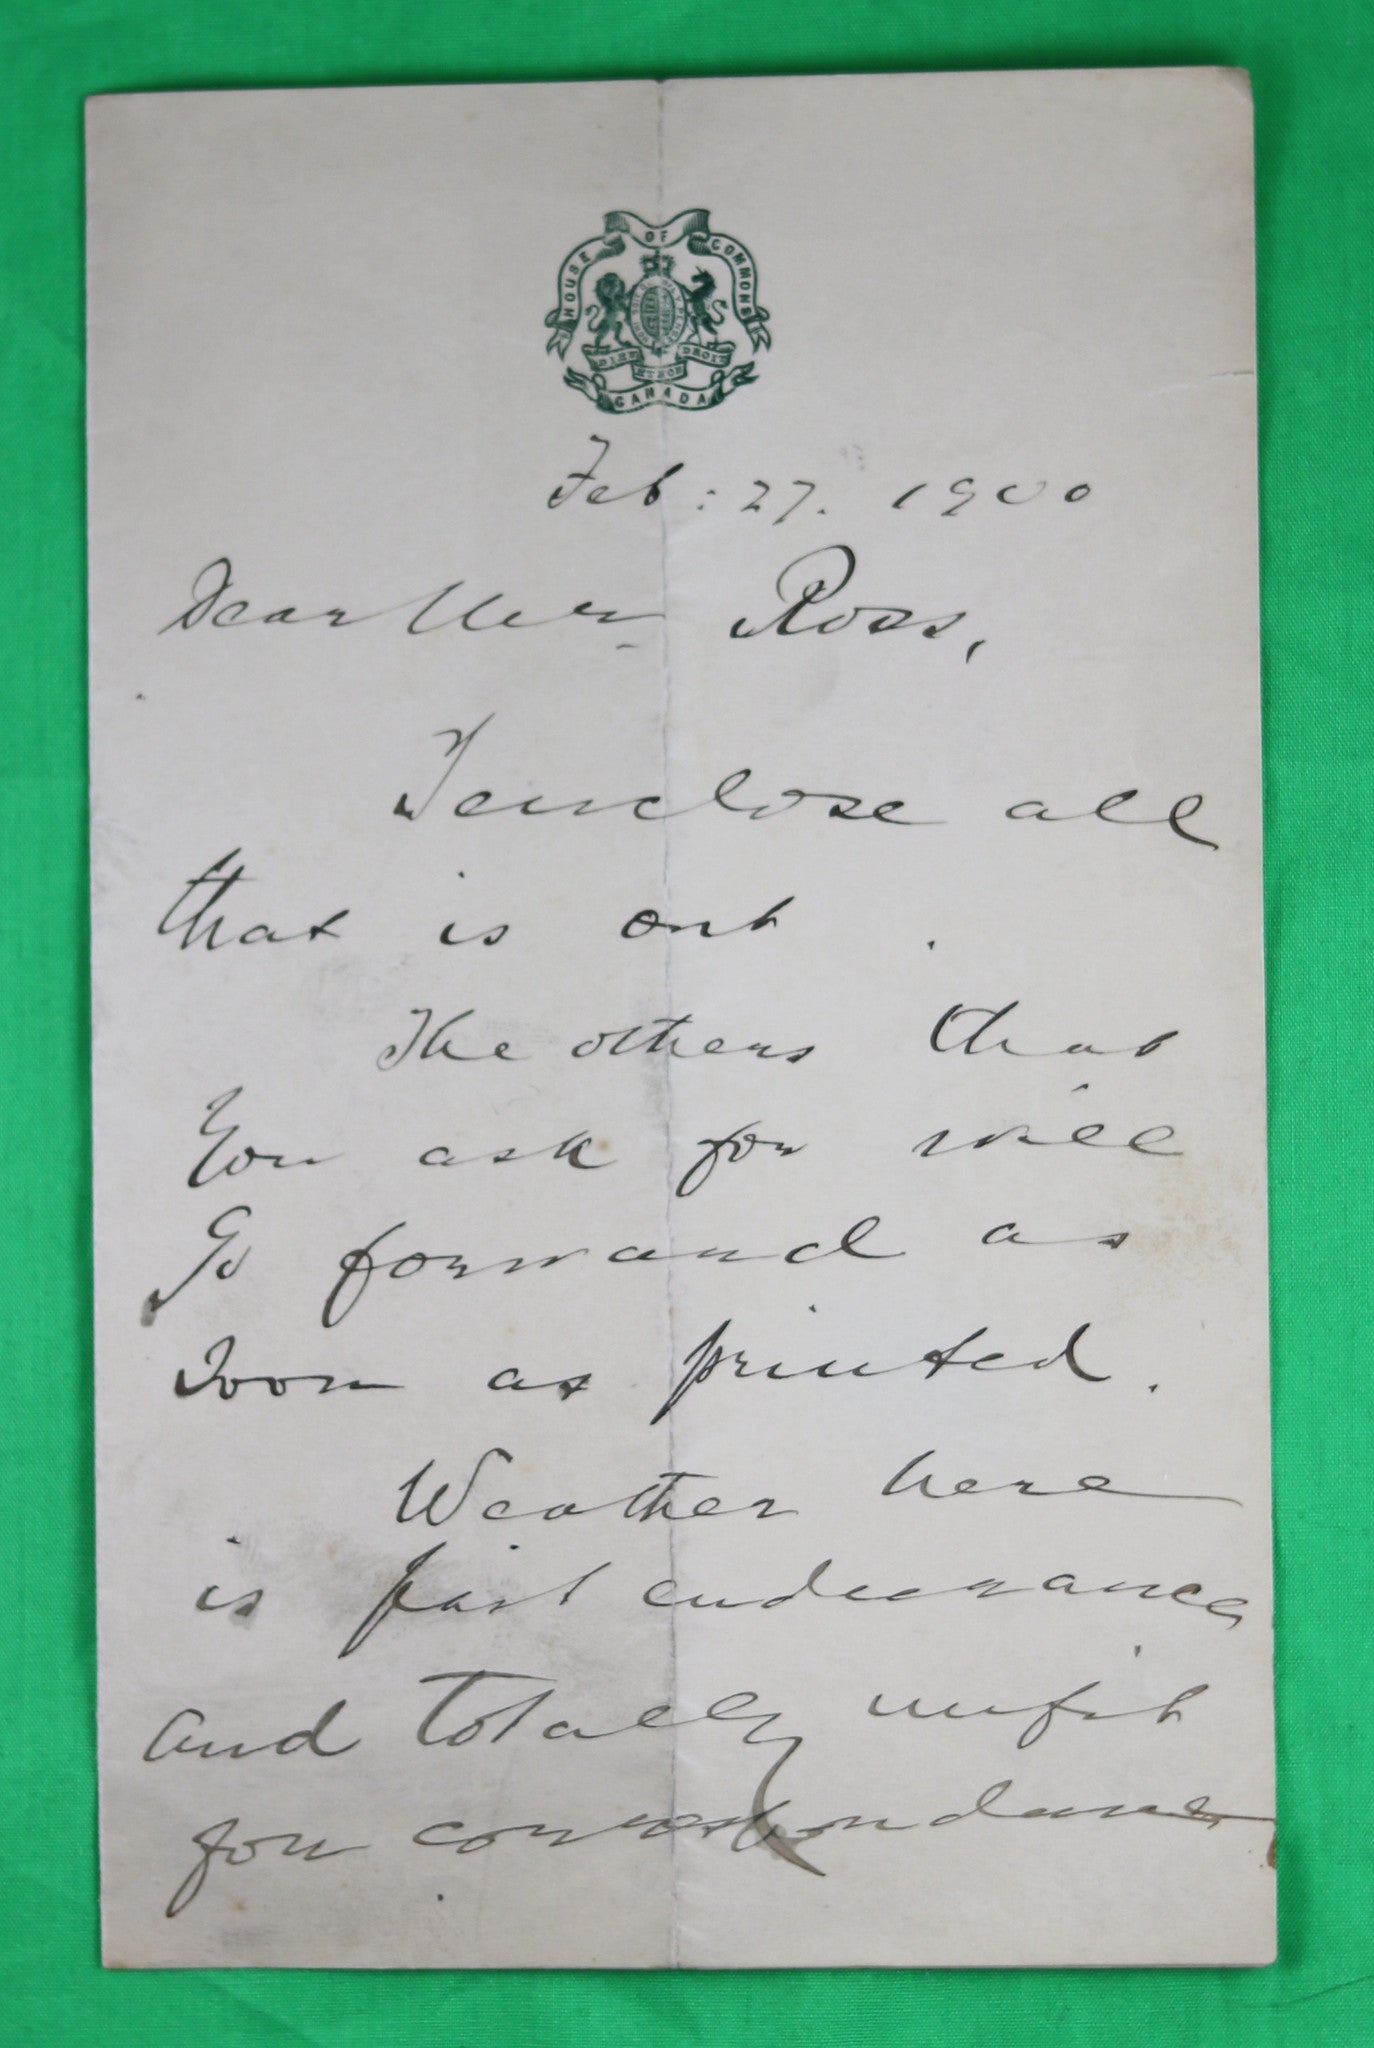 HOUSE OF COMMONS
DIEU ET MON DROIT
CANADA
Feb: 27. 1900
Dear Ross,
I enclose all
that is out.
The others that
you ask for will
go forward as
soon as printed.
Weather here
is past endurance
and totally unfit
for correspondence